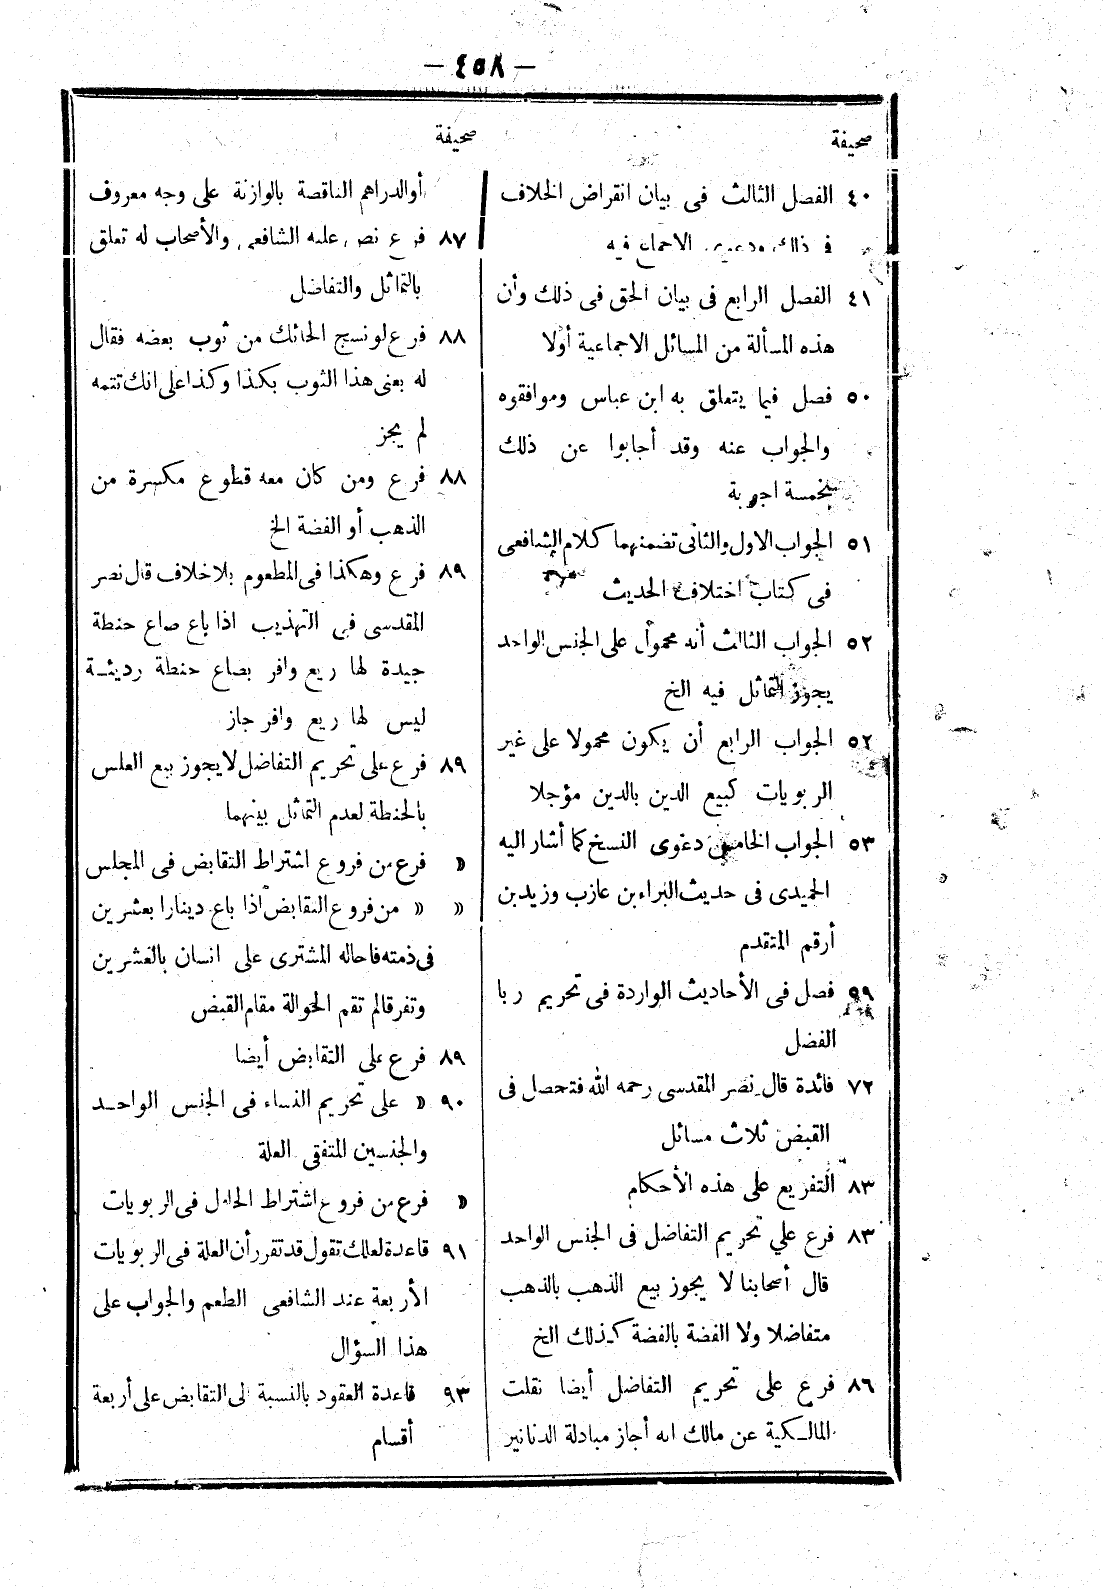 — ٤٥٨ —
صحيفة
٤٠ الفصل الثالث فى بيان انقراض الخلاف
فى ذلك ودعوى الاجماع فيه
٤١ الفصل الرابع فى بيان الحق فى ذلك وأن
هذه المسألة من المسائل الاجماعية أولا
٥٠ فصل فيما يتعلق به ابن عباس وموافقوه
والجواب عنه وقد أجابوا عن ذلك
بخمسة اجوبة
٥١ الجواب الاول والثانى تضمنهما كلام الشافعى
فى كتاب اختلاف الحديث
٥٢ الجواب الثالث أنه محمول على الجنس الواحد
يجوز التماثل فيه الخ
٥٢ الجواب الرابع أن يكون محمولا على غير
الربويات كبيع الدين بالدين مؤجلا
٥٣ الجواب الخامس دعوى النسخ كما أشار اليه
الحميدى فى حديث البراء بن عازب وزيد بن
أرقم المتقدم
٥٩ فصل فى الأحاديث الواردة فى تحريم ربا
الفضل
٧٢ فائدة قال نصر المقدسى رحمه الله فتحصل فى
القبض ثلاث مسائل
٨٣ التفريع على هذه الأحكام
٨٣ فرع علي تحريم التفاضل فى الجنس الواحد
قال أصحابنا لا يجوز بيع الذهب بالذهب
متفاضلا ولا الفضة بالفضة كذلك الخ
٨٦ فرع على تحريم التفاضل أيضا نقلت
المالكية عن مالك انه أجاز مبادلة الدنانير
صحيفة
أو الدراهم الناقصة بالوازنة على وجه معروف
٨٧ فرع نص عليه الشافعى والأصحاب له تعلق
بالتماثل والتفاضل
٨٨ فرع لو نسج الحائك من ثوب بعضه فقال
له بعنى هذا الثوب بكذا وكذا على انك تتمه
لم يجز
٨٨ فرع ومن كان معه قطوع مكسرة من
الذهب أو الفضة الخ
٨٩ فرع وهكذا فى المطعوم بلا خلاف قال نصر
المقدسى فى التهذيب اذا باع صاع حنطة
جيدة لها ريع وافر بصاع حنطة رديئة
ليس لها ريع وافر جاز
٨٩ فرع على تحريم التفاضل لا يجوز بيع العلس
بالحنطة لعدم التماثل بينهما
» فرع من فروع اشتراط التقابض فى المجلس
» » من فروع التقابض اذا باع دينارا بعشرين
فى ذمته فاحاله المشترى على انسان بالعشرين
وتفرقا لم تقم الحوالة مقام القبض
٨٩ فرع على التقابض أيضا
٩٠ » على تحريم النساء فى الجنس الواحد
والجنسين المتفقى العلة
» فرع من فروع اشتراط الحلول فى الربويات
٩١ قاعدة لعلك تقول قد تقرر أن العلة فى الربويات
الأربعة عند الشافعى الطعم والجواب على
هذا السؤال
٩٣ قاعدة العقود بالنسبة الى التقابض على أربعة
أقسام